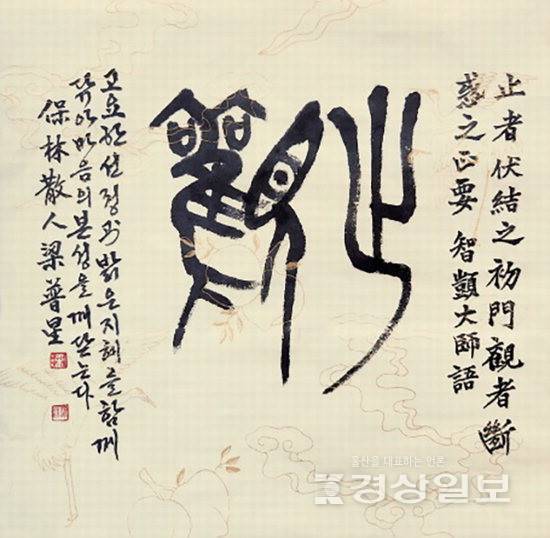 止者伏結之初門觀者斷
惑之正要 智顗大師語
止觀
고요한 선정과 밝은 지혜를 함께
닦아 마음의 본성을 깨닫는다
保林散人梁普星
울산을 대표하는 언론
경상일보